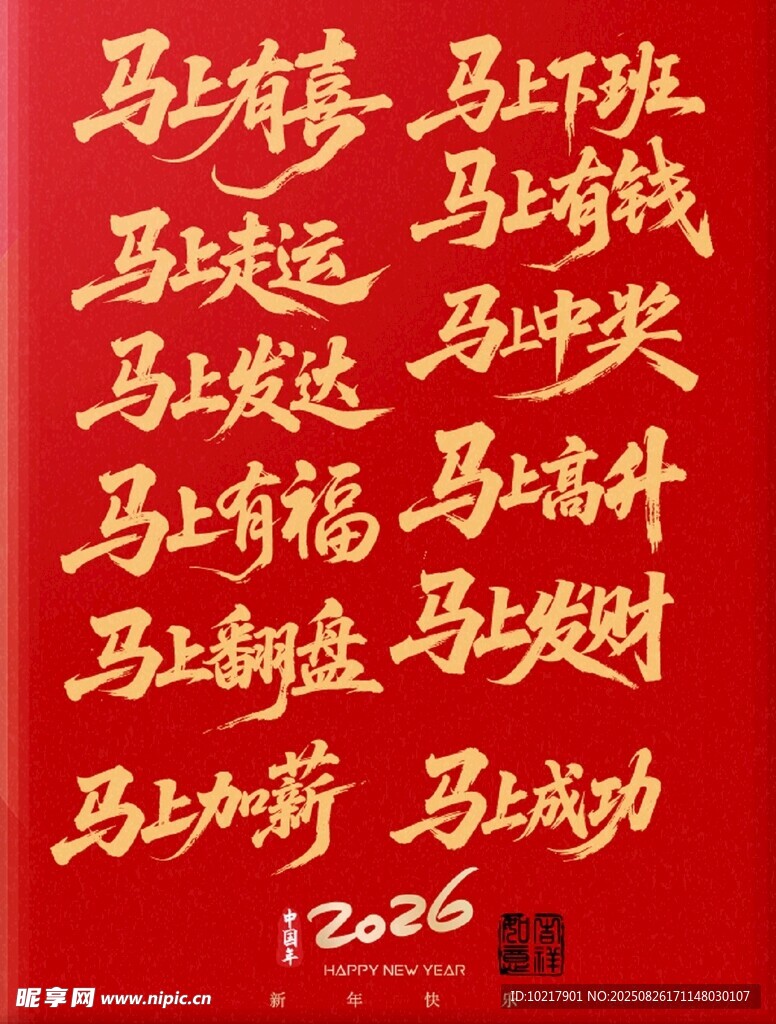 马上有喜
马上下班
马上有钱
马上走运
马上中奖
马上发达
马上高升
马上有福
马上发财
马上翻盘
马上加薪
马上成功
中国年
2026
吉祥如意
HAPPY NEW YEAR
新年快乐
昵享网 www.nipic.cn
ID:10217901 NO:20250826171148030107